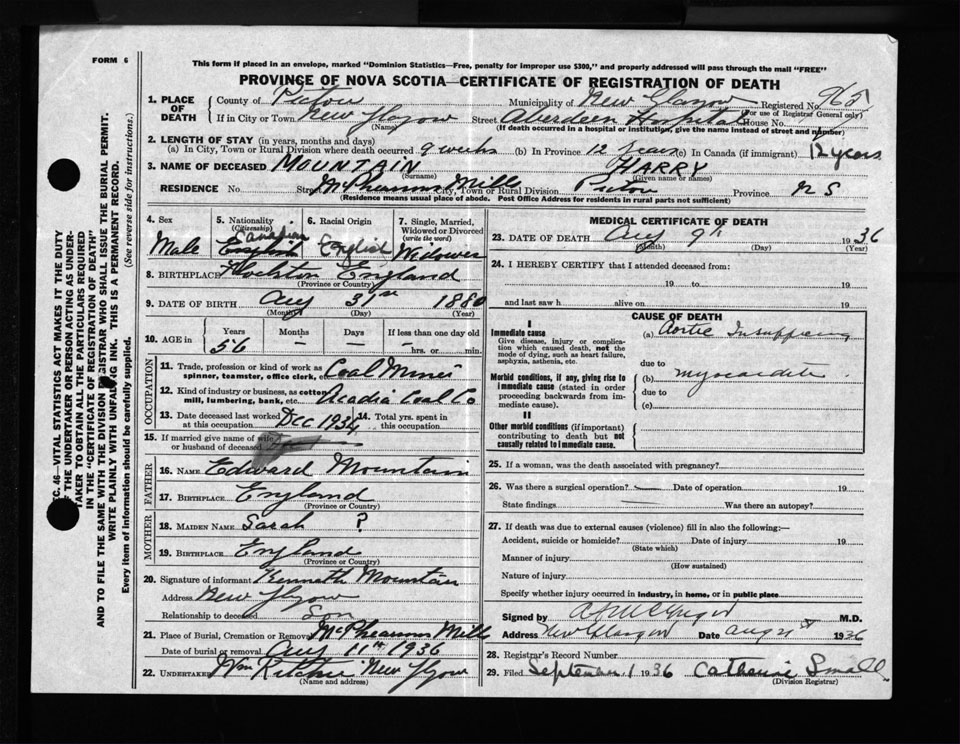 FORM 6
This form if placed in an envelope, marked "Dominion Statistics—Free, penalty for improper use $300," and properly addressed will pass through the mail "FREE"
PROVINCE OF NOVA SCOTIA—CERTIFICATE OF REGISTRATION OF DEATH
1. PLACE OF DEATH County of Pictou Municipality of New Glasgow Registered No. 965
(For use of Registrar General only)
If in City or Town New Glasgow Street Aberdeen Hospital House No.
(Name) (If death occurred in a hospital or institution, give the name instead of street and number)
2. LENGTH OF STAY (in years, months and days)
(a) In City, Town or Rural Division where death occurred 9 weeks (b) In Province 12 years (c) In Canada (if immigrant) 12 years
3. NAME OF DECEASED MOUNTAIN HARRY
(Surname) (Given name or names)
RESIDENCE No. Street McPhersons Mills City, Town or Rural Division Pictou Province N S
(Residence means usual place of abode. Post Office Address for residents in rural parts not sufficient)
4. Sex 5. Nationality (Citizenship) 6. Racial Origin 7. Single, Married, Widowed or Divorced (write the word)
Canadian
Male English English Widower
8. BIRTHPLACE England
(Province or Country)
9. DATE OF BIRTH Aug 31st 1880
(Month) (Day) (Year)
10. AGE in Years Months Days If less than one day old
56 — — hrs. or min.
OCCUPATION
11. Trade, profession or kind of work as spinner, teamster, office clerk, etc. Coal Miner
12. Kind of industry or business, as cotton mill, lumbering, bank, etc. Acadia Coal Co
13. Date deceased last worked at this occupation Dec 1934 14. Total yrs. spent in this occupation
15. If married give name of wife or husband of deceased
FATHER
16. NAME Edward Mountain
17. BIRTHPLACE England
(Province or Country)
MOTHER
18. MAIDEN NAME Sarah ?
19. BIRTHPLACE England
(Province or Country)
20. Signature of informant Kenneth Mountain
Address New Glasgow
Relationship to deceased Son
21. Place of Burial, Cremation or Removal McPhersons Mills
Date of burial or removal Aug 11th 1936
22. UNDERTAKER Wm Ritchie New Glasgow
(Name and address)
MEDICAL CERTIFICATE OF DEATH
23. DATE OF DEATH Aug 9th 1936
(Month) (Day)
24. I HEREBY CERTIFY that I attended deceased from:
19 to 19
and last saw h alive on 19
CAUSE OF DEATH
I
Immediate cause (a) Aortic Insufficiency
Give disease, injury or complication which caused death, not the mode of dying, such as heart failure, asphyxia, asthenia, etc.
due to
Morbid conditions, if any, giving rise to immediate cause (stated in order proceeding backwards from immediate cause). (b) Myocarditis
due to
(c)
II
Other morbid conditions (if important) contributing to death but not causally related to immediate cause.
25. If a woman, was the death associated with pregnancy?
26. Was there a surgical operation? — Date of operation 19
State findings Was there an autopsy?
27. If death was due to external causes (violence) fill in also the following:—
Accident, suicide or homicide? Date of injury 19
(State which)
Manner of injury
(How sustained)
Nature of injury
Specify whether injury occurred in industry, in home, or in public place
Signed by M.D.
Address New Glasgow Date Aug 1936
28. Registrar's Record Number
29. Filed September 1 1936 Catherine Small
(Division Registrar)
SEC. 46—VITAL STATISTICS ACT MAKES IT THE DUTY
OF THE UNDERTAKER OR PERSON ACTING AS UNDER-
TAKER TO OBTAIN ALL THE PARTICULARS REQUIRED
IN THE "CERTIFICATE OF REGISTRATION OF DEATH"
AND TO FILE THE SAME WITH THE DIVISION REGISTRAR WHO SHALL ISSUE THE BURIAL PERMIT.
WRITE PLAINLY WITH UNFADING INK. THIS IS A PERMANENT RECORD.
Every item of information should be carefully supplied. (See reverse side for instructions.)